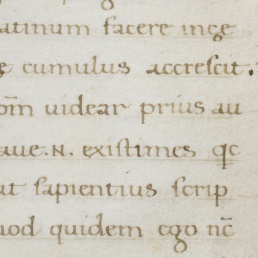 atinum facere inge
ę cumulus accrescit.
om̅ uidear prius au
aue.N. existimes qc
ut sapientius scrip
uod quidem ego nc̅